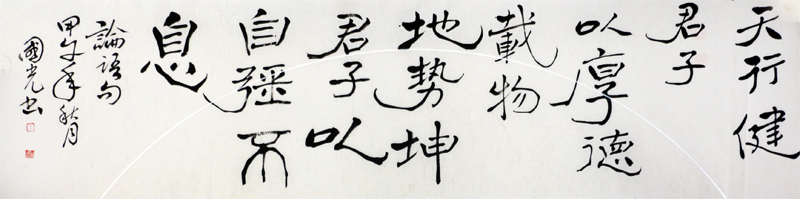 天行健
君子
以厚德
載物
地勢坤
君子以
自彊不
息
論語句
甲午年秋月
國光书